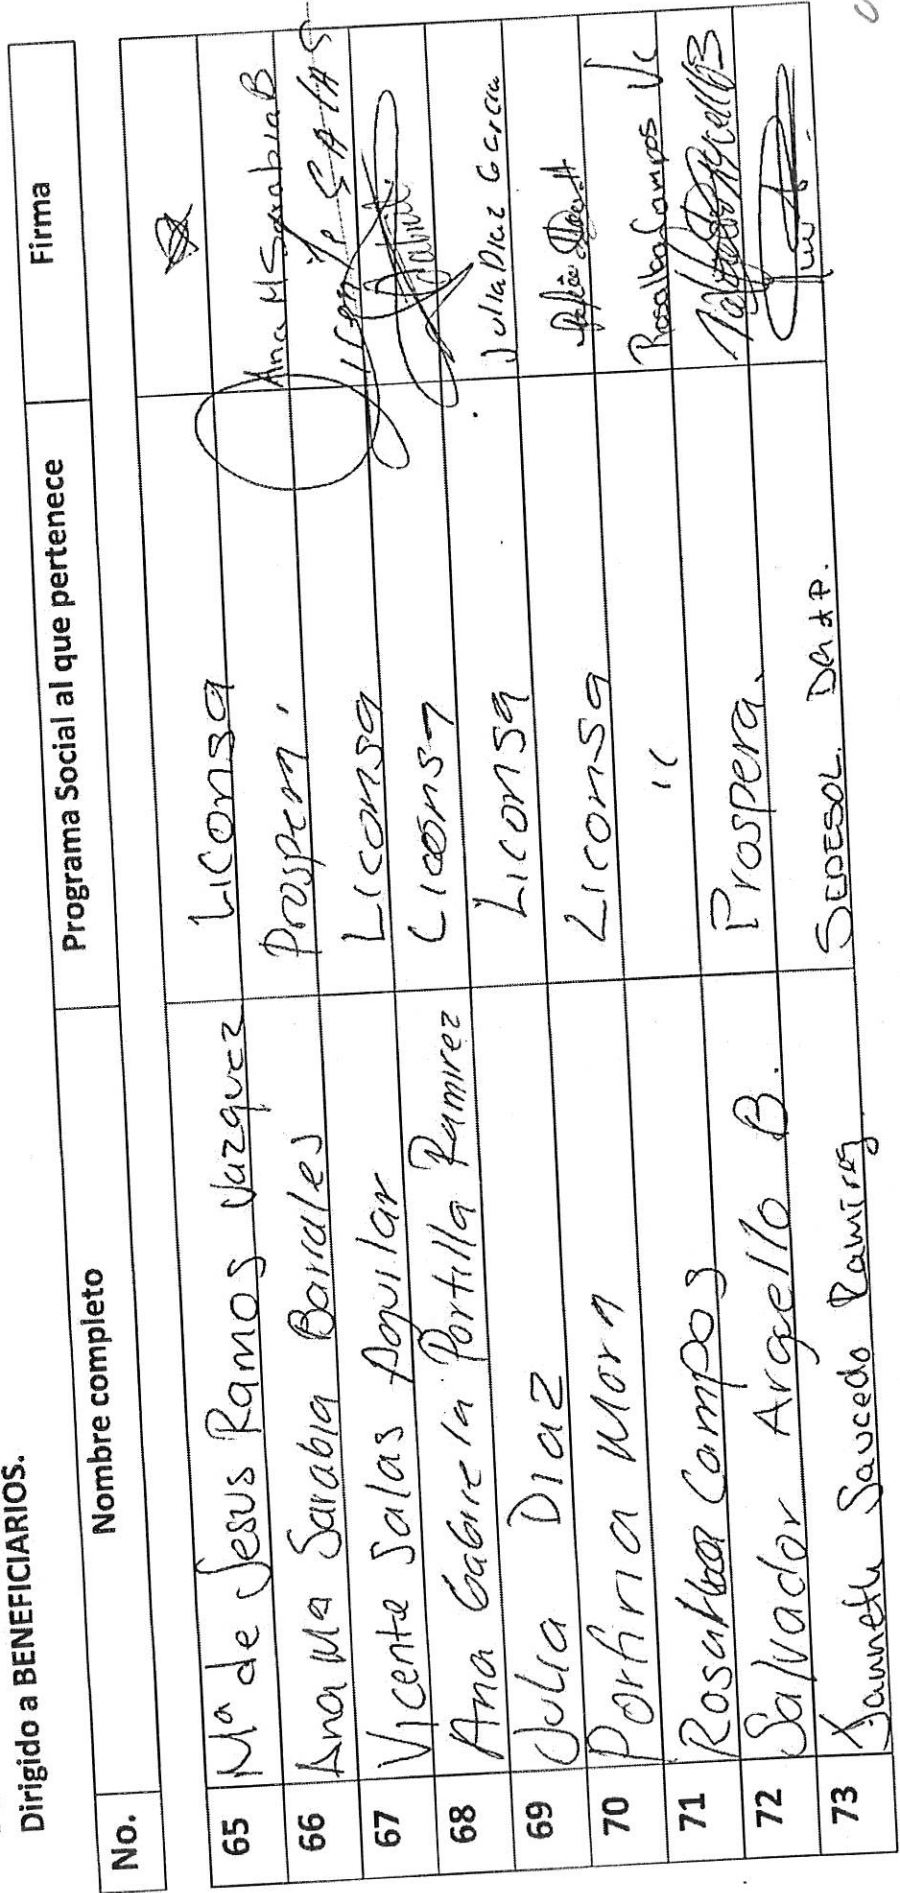 Dirigido a BENEFICIARIOS.
No. Nombre completo Programa Social al que pertenece Firma
65 Mª de Jesus Ramos Vazquez Liconsa
66 Ana Mª Sarabia Barrales Prospera Ana M Sarabia B
67 Vicente Salas Aguilar Liconsa SALAS
68 Ana Gabirela Portilla Ramirez Liconsa
69 Julia Diaz Liconsa Julia Diaz Garcia
70 Porfiria Mora Liconsa
71 Rosalba Campos " Rosalba Campos
72 Salvador Argello B. Prospera.
73 Janneth Saucedo Ramirez SEDESOL.